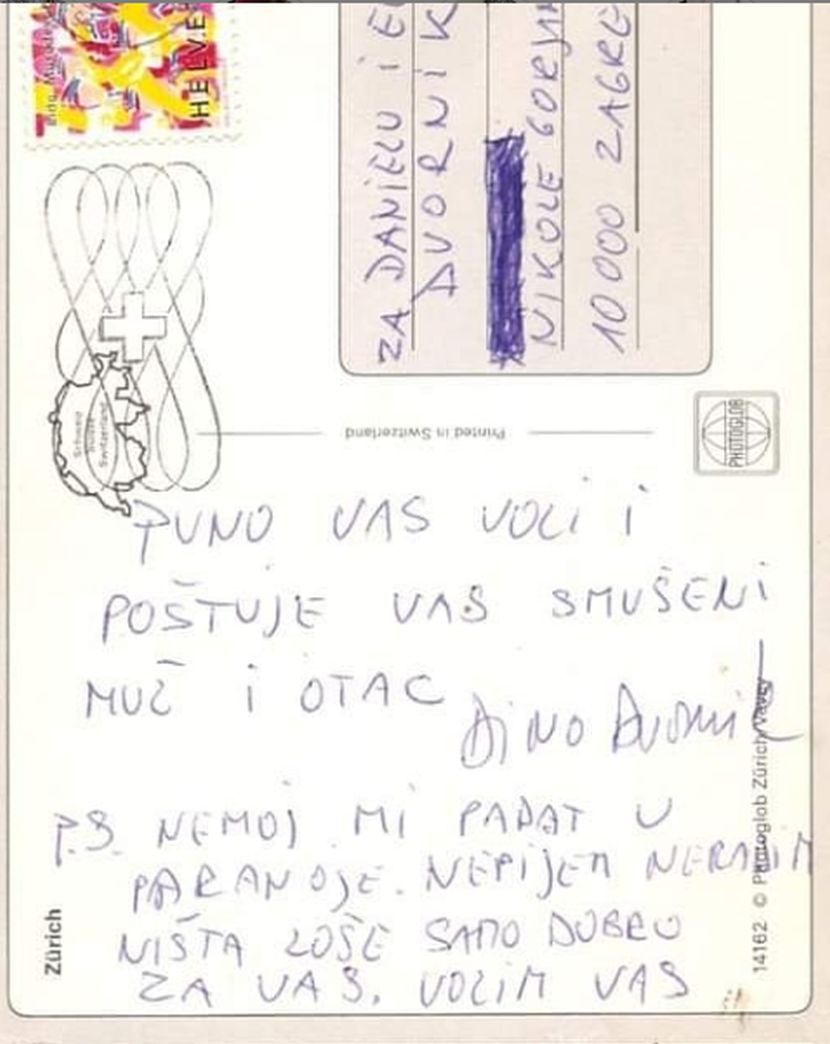 HELVE
ZA DANIELU I E
DVORNIK
NIKOLE GORJAN
10000 ZAGRE
Schweiz
Suisse
Switzerland
Printed in Switzerland
PHOTOGLOB
PUNO VAS VOLI I
POŠTUJE VAŠ SMUŠENI
MUŽ I OTAC
DINO DVORNIK
P.S. NEMOJ MI PADAT U
PARANOJE. NEPIJEM NERADIM
NIŠTA LOŠE SAMO DOBRO
ZA VAS. VOLIM VAS
Zürich
14162 © Photoglob Zürich/Vevey